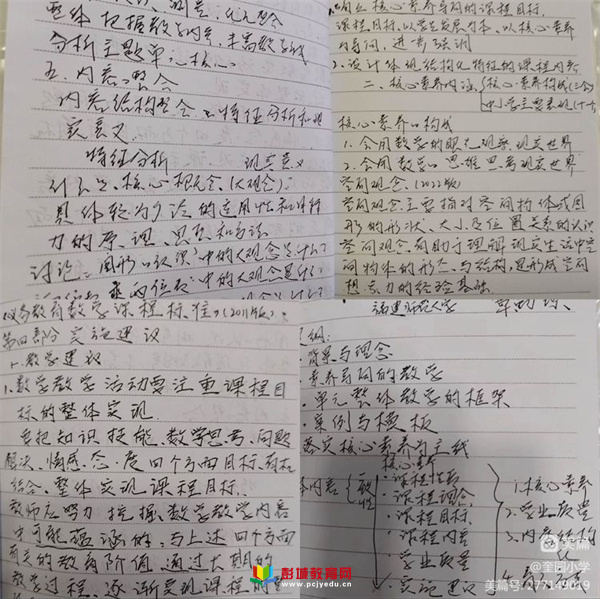 整体把握教学内容
分析主题、单元、核心
五、内容整合
内容结构整合的特征分析和现
实意义
特征分析 现实意义
什么是核心概念(大观念):
力的原理、思想和方法
课程目标以学生发展为本,以核心素养
为导向,进一步强调
2、设计体现结构化特征的课程内容
二、核心素养内涵
核心素养构成(三会)
核心素养的构成
1、会用数学的眼光观察现实世界
2、会用数学的思维思考现实世界
空间观念(2022版)
空间观念主要指对空间物体或图
形的形状、大小及位置关系的认识
空间观念有助于理解现实生活中空
间物体的形态与结构,是形成空间
想象力的经验基础
义务教育数学课程标准(2011版):
第四部分 实施建议
一、教学建议
1、数学教学活动要注重课程目
标的整体实现
要把知识技能、数学思考、问题
解决、情感态度四个方面目标有机
结合,整体实现课程目标。
教师应努力挖掘数学教学内容
中可能蕴涵的、与上述四个方面
有关的教育价值,通过长期的
教学过程,逐渐实现课程的
福建师范大学
提纲:
背景与理念
素养导向的教学
单元整体教学的框架
案例与模板
落实核心素养为主线
核心素养
课程性质
课程理念
课程目标
课程内容
学业质量
实施建议
1、核心素养
2、学业质量
3、内容结构
彭城教育网
www.pcjyedu.cn
美篇
@奎园小学
美篇号:277149019